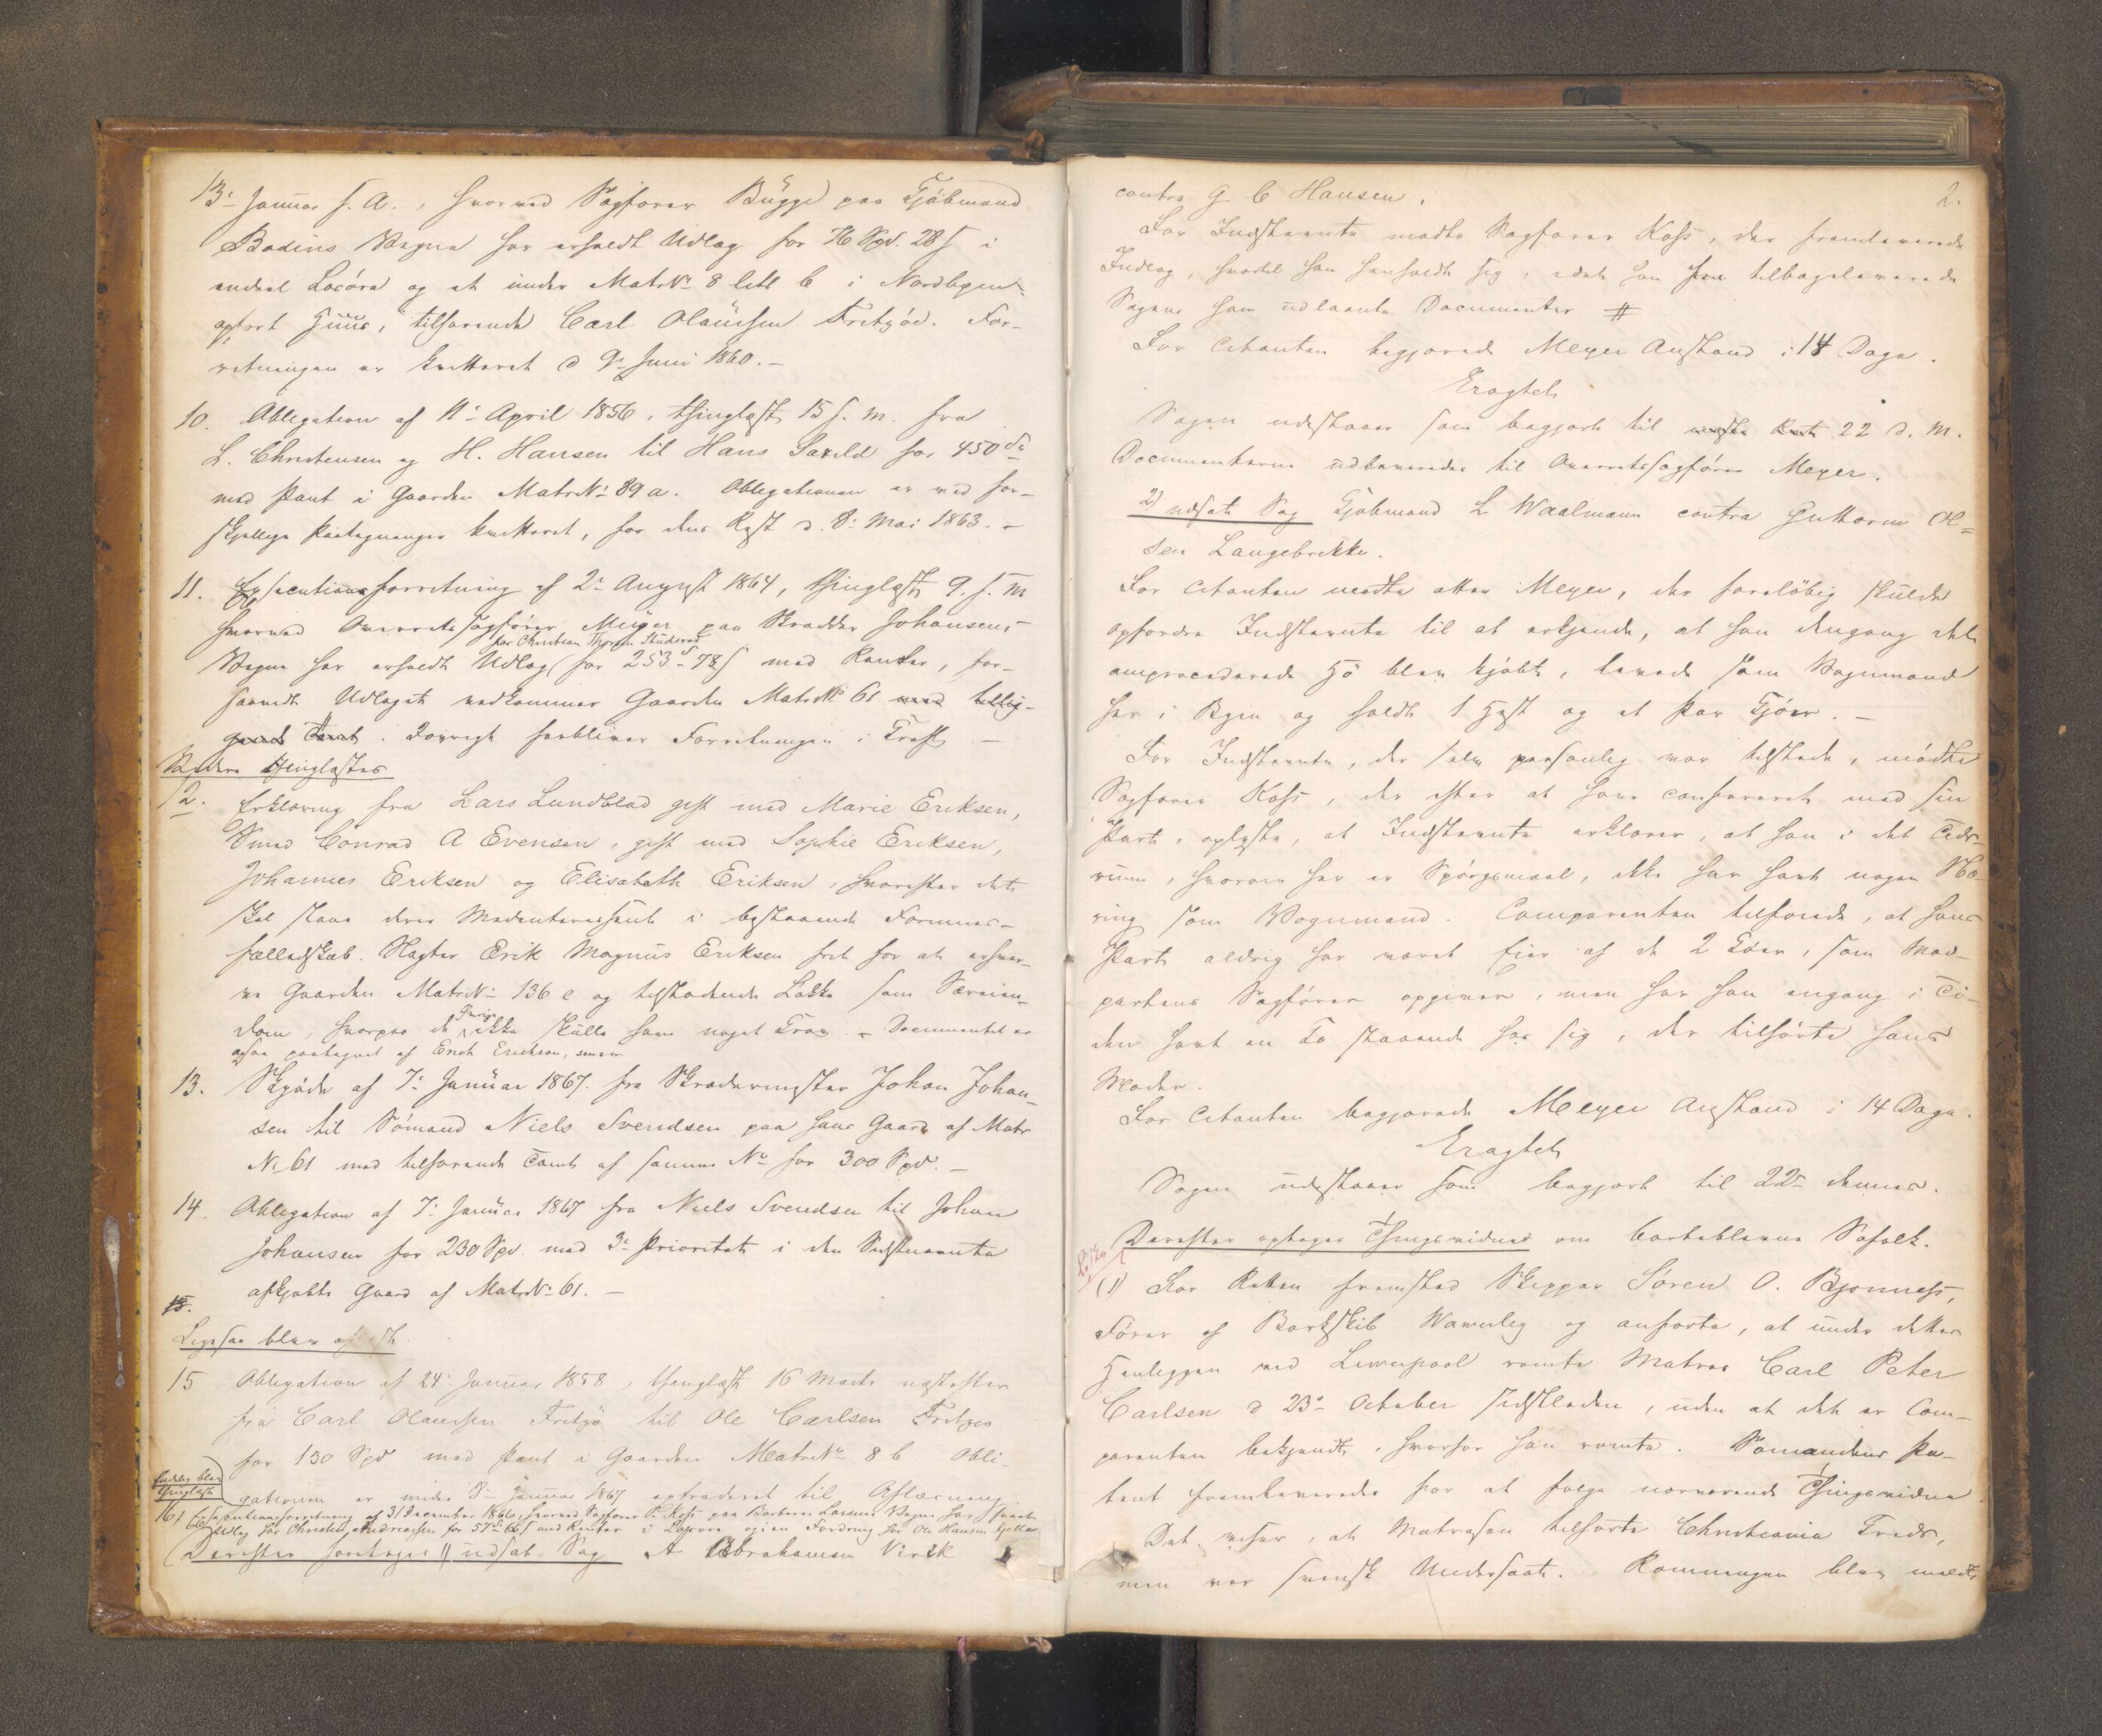 13de Januar s. A., hvorved Sagfører Bugge paa Kjøbmand
Bodins Vegne har erholdt Udlag for 76 Spd. 28 s i
endeel Løsøre og et under Matr No 8 litt b i Nordbyen
opført Huus, tilhørende Carl Olausen Fritzøe. For-
retningen er kvitteret d 9de Juni 1860. -
10. Obligation af 11te April 1856, thinglæst 15 s. M. fra
L. Christensen og H. Hansen til Hans Saxild for 450 Sp
med Pant i Gaarden Matr No 89 a. Obligationen er ved for-
skjellige Paategninger kvitteret, for dens Rest d. 8de Mai 1863. -
11. Executionsforretning af 2den August 1864, thinglæst 9. s. M
hvorved Overretssagfører Meyer paa Skrædder Johansens
for Christian Thorsen Studsrød
Vegne har erholdt Udlag for 253 - 78 s med Renter, for-
saavidt Udlaget vedkommer Gaarden Matr No 61 med tillig-
gende Tomt. Iøvrigt forbliver Forretningen i Kraft -
Videre thinglæstes
12. Erklæring fra Lars Lundblad gift med Marie Eriksen,
Smed Conrad A Evensen, gift med Sophie Eriksen,
Johannes Eriksen og Elisabeth Eriksen, hvorefter det
skal staae deres Medinteressent i bestaaende Formues-
fælledskab. Slagter Erik Magnus Eriksen frit for at erhver-
ve Gaarden Matr No 136 e og tilstødende Løkke som Særeien-
dom, hvorpaa de Øvrige ikke skulle have noget Krav. - Documentet er
ogsaa paategnet af Erich Erichson, senior
13. Skjøde af 7de Januar 1867 fra Skrædermester Johan Johan-
sen til Sømand Niels Svendsen paa hans Gaard af Matr
No 61 med tilhørende Tomt af samme No for 300 Spd. -
14. Obligation af 7de Januar 1867 fra Niels Svendsen til Johan
Johansen for 230 Spd. med 3de Prioritet i den Sidstnævnte
afkjøbte Gaard af Matr No 61. -
15.
Ligesaa blev aflæst.
15 Obligation af 24 Januar 1858, thinglæst 16 Marts næstefter
fra Carl Olausen Fritzø til Ole Carlsen Fritzøe
for 130 Spd med Pant i Gaarden Matr No 8 b Obli-
gationen er under 8de Januar 1867 extraderet til Aflæsning
Endelig blev
thinglæst
16, Executionsforretning af 31 December 1866, hvorved Sagfører P. Koss paa Barberer Larsens Vegne har faaet
Udlag hos Christen Andreassen for 57 66 s med Renter i Løsøre og i en Fordring hos Ole Hansen Kjella
Derefter foretages 1) udsat Sag A Abrahamsen Virik
2.
contra G C Hansen.
For Indstævnte mødte Sagfører Koss, der fremleverede
Indlæg, hvortil han henholdt sig, idet han tilbageleverede
Sagens ham udlaante Documenter #
For Citanten begjærede Meyer Anstand i 14 Dage.
Eragtet
Sagen udstaaer som begjært til næste Ret 22 d. M.
Documenterne udleveredes til Overretssagfører Meyer.
2) udsat Sag Kjøbmand L Waalmann contra Guttorm Ol-
sen Langebrekke.
For Citanten mødte atter Meyer, der foreløbig skulde
opfordre Indstævnte til at erkjende, at han dengang det
omprocederede Hø blev kjøbt, levede som Vognmand
her i Byen og holdt 1 Hest og et Par Kjøer. -
For Indstævnte, der selv personlig var tilstede, mødte
Sagfører Koss, der efter at have confereret med sin
Part, oplyste, at Indstævnte erklærer, at han i det Tids-
rum, hvorom her er Spørgsmaal, ikke har havt nogen Næ-
ring som Vognmand. Comparenten tilføiede, at hans
Part aldrig har været Eier af de 2 Køer, som Mod-
partens Sagfører opgiver, men har han engang i Ti-
den havt en Ko staaende hos sig, der tilhørte hans
Moder.
For Citanten begjærede Meyer Anstand i 14 Dage.
Eragtet
Sagen udstaaer som begjært til 22de dennes.
Derefter optages Thingsvidner om bortebleven Søfolk.
(1) For Retten fremstod Skipper Søren O. Bjønness,
Fører af Barkskib Wawerley og anførte, at under dettes
Henliggen ved Liverpool rømte Matros Carl Peter
Carlsen d 23de October sidstleden, uden at det er Com-
parenten bekjendt, hvorfor han rømte. Sømandens Pa-
tent fremleveredes for at følge nærværende Thingsvidne.
Det viser, at Matrosen tilhørte Christiania Kreds,
men var svensk Undersaat. Rømningen blev meldt